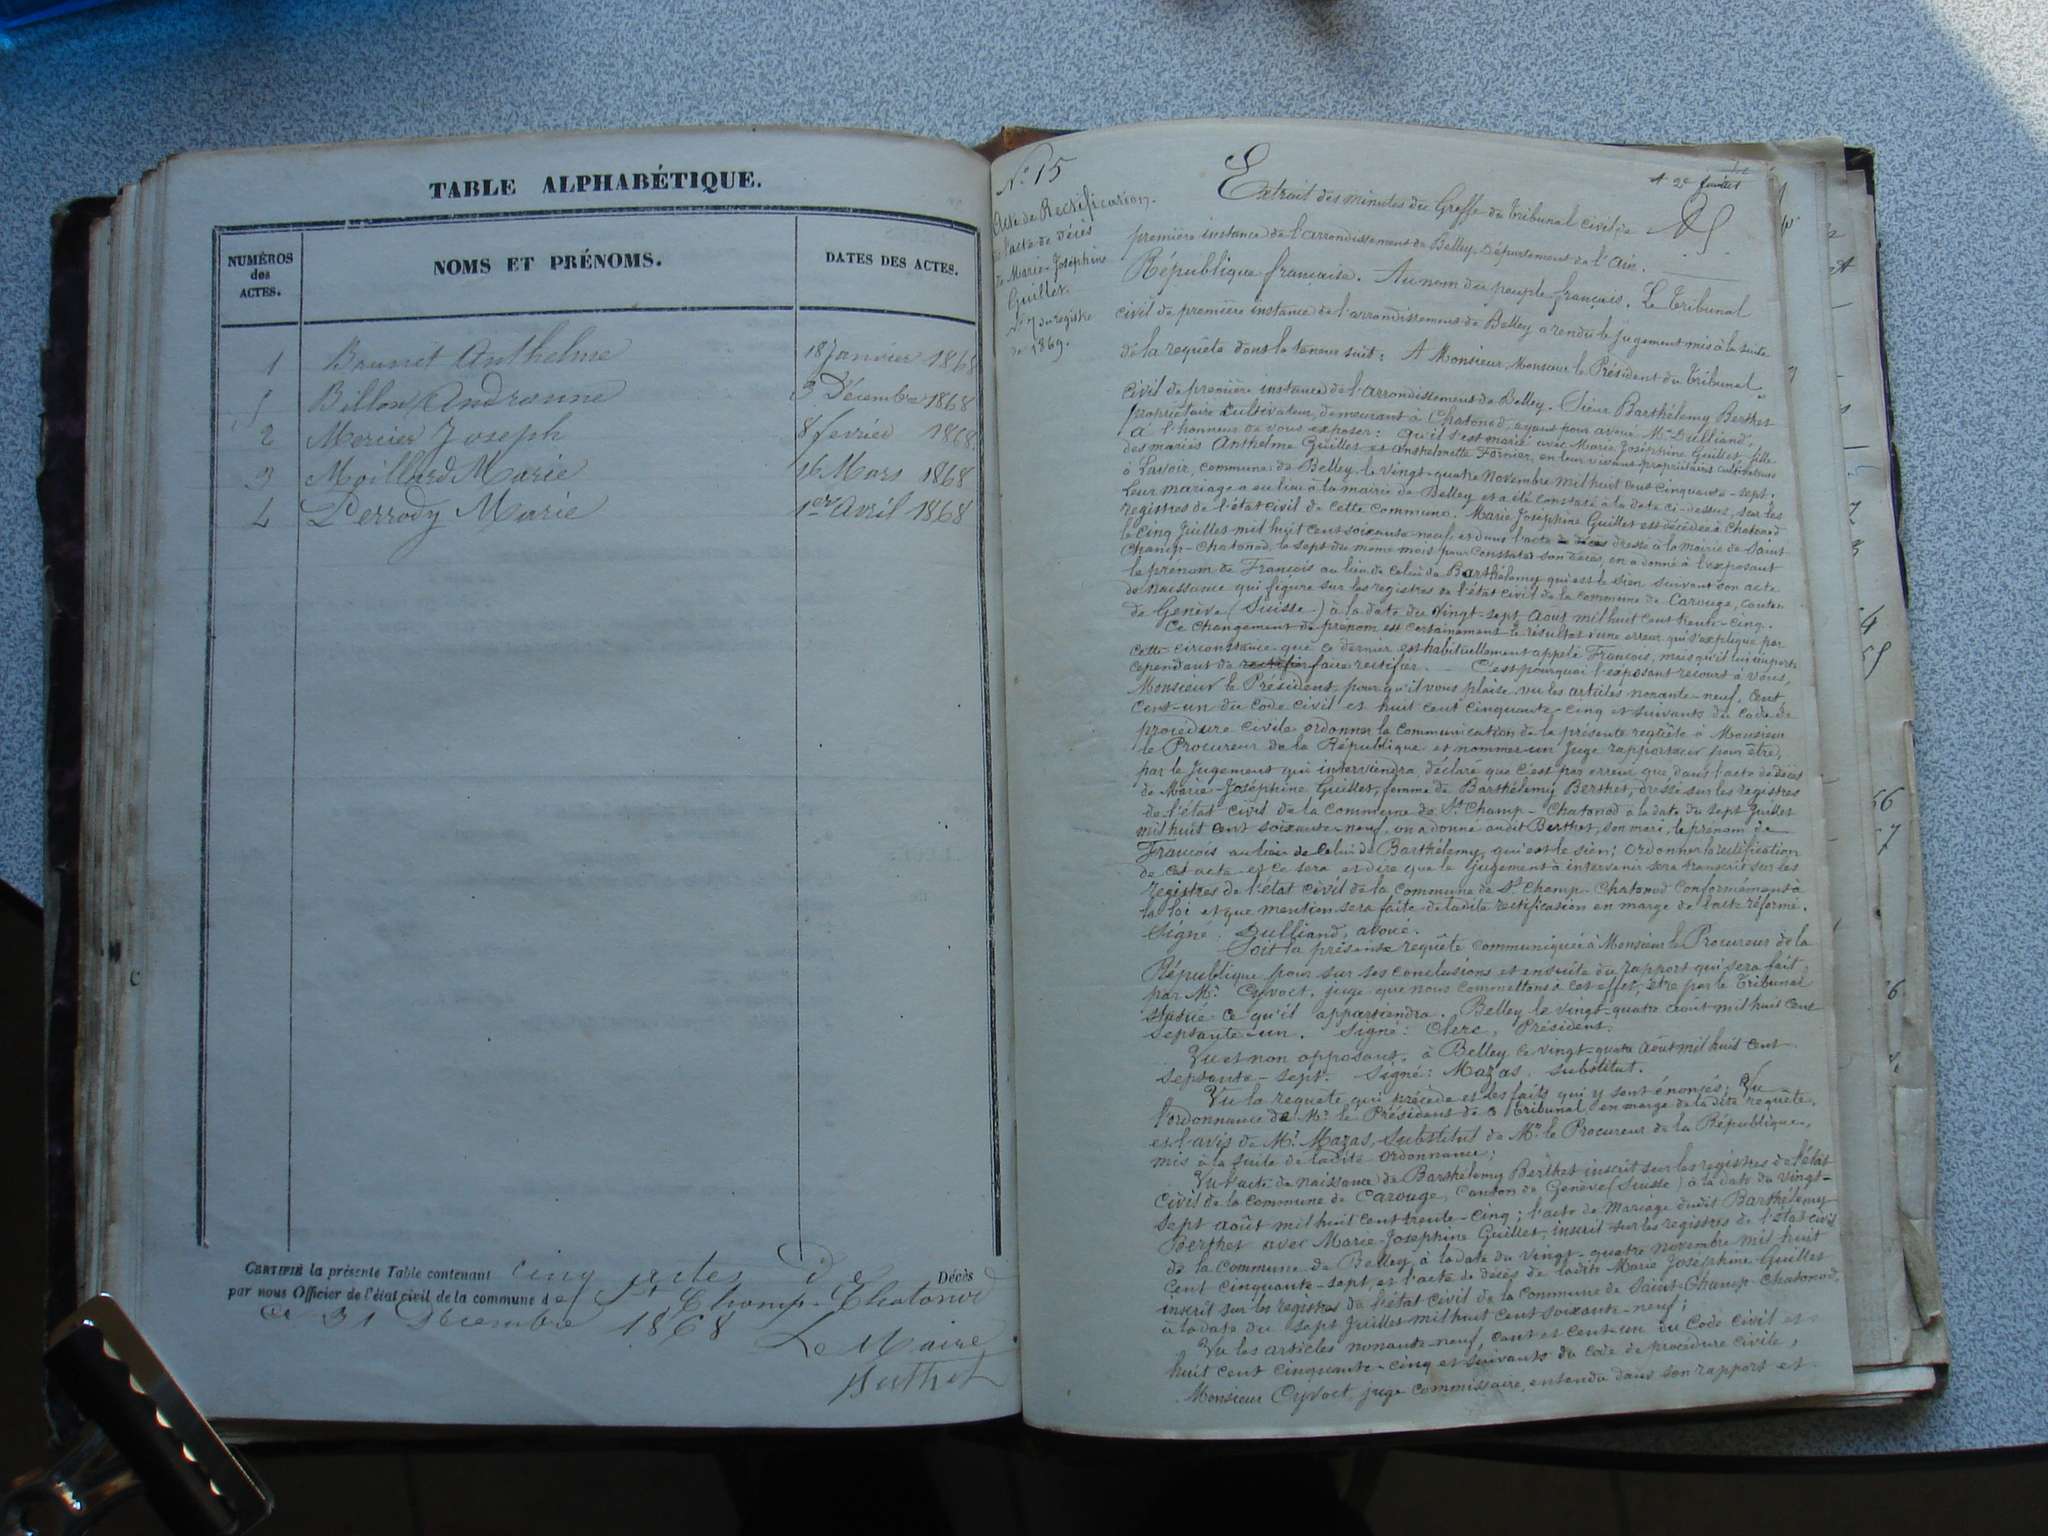 TABLE ALPHABÉTIQUE.
NUMÉROS des ACTES.
NOMS ET PRÉNOMS.
DATES DES ACTES.
1 Brunet Anthelme 18 Janvier 1868
5 Billon Andréanne 3 Décembre 1868
2 Mercier Joseph 8 fevrier 1868
3 Moillard Marie 16 Mars 1868
4 Perrody Marie 1er Avril 1868
CERTIFIÉ la présente Table contenant cinq actes de Décès
par nous Officier de l'état civil de la commune de St Champ-Chatonod
ce 31 Décembre 1868
Le Maire
Berthet
N° 15
Acte de Rectification
de l'acte de décès
de Marie-Joséphine
Guillet.
N° 7 du registre
de 1869.
2e feuillet
Extrait des minutes du Greffe du Tribunal civil de
première instance de l'arrondissement de Belley, Département de l'Ain.
République française. Au nom du peuple français. Le Tribunal
civil de première instance de l'arrondissement de Belley a rendu le jugement mis à la suite
de la requête dont la teneur suit: A Monsieur, Monsieur le Président du Tribunal
civil de première instance de l'arrondissement de Belley. Sieur Barthélemy Berthet
propriétaire cultivateur, demeurant à Chatonod, ayant pour avoué Me Dulliand,
A l'honneur de vous exposer: Qu'il s'est marié avec Marie Joséphine Guillet, fille
des mariés Anthelme Guillet et Anthelmette Fornier, en leur vivant propriétaires cultivateurs
à Savoir, commune de Belley le vingt-quatre Novembre mil huit cent cinquante-sept.
Leur mariage a eu lieu à la mairie de Belley et a été constaté à la date ci-dessus, sur les
registres de l'état civil de cette commune. Marie Joséphine Guillet est décédée à Chatonod
le cinq Juillet mil huit cent soixante-neuf et dans l'acte dressé à la Mairie de Saint
Champ-Chatonod, le sept du même mois pour constater son décès, on a donné à l'exposant
le prenom de François au lieu de celui de Barthélemy qui est le sien suivant son acte
de naissance qui figure sur les registres de l'état civil de la commune de Carouge, canton
de Genève (Suisse) à la date du vingt-sept Aout mil huit cent trente-cinq.
Ce changement de prénom est certainement le résultat d'une erreur qui s'explique par
cette circonstance que ce dernier est habituellement appelé François, mais qu'il lui importe
cependant de rectifier faire rectifier. — C'est pourquoi l'exposant recourt à vous,
Monsieur le Président, pour qu'il vous plaise vu les articles nonante-neuf, Cent,
Cent-un du Code Civil et huit cent cinquante-cinq et suivants du Code de
procédure Civile ordonner la communication de la présente requête à Monsieur
le Procureur de la République et nommer un Juge rapporteur pour être,
par le Jugement qui interviendra, déclaré que c'est par erreur que, dans l'acte de décès
de Marie-Joséphine Guillet, femme de Barthélemy Berthet, dressé sur les registres
de l'état civil de la Commune de St Champ-Chatonod à la date du sept Juillet
mil huit cent soixante-neuf, on a donné audit Berthet, son mari, le prenom de
François au lieu de celui de Barthélemy, qui est le sien; ordonner la rectification
de cet acte et ce sera et dire que le Jugement à intervenir sera transcrit sur les
registres de l'état civil de la Commune de St Champ-Chatonod Conformément à
la loi et que mention sera faite de ladite rectification en marge de l'acte réformé.
Signé: Dulliand, avoué.
Soit la présente requête communiquée à Monsieur le Procureur de la
République pour sur ses conclusions et ensuite du rapport qui sera fait
par Mr Cyvoct, juge que nous commettons à cet effet, être par le Tribunal
statué ce qu'il appartiendra. Belley le vingt-quatre août mil huit cent
septante-un. Signé: Clerc, Président.
Vu et non opposant, à Belley le vingt-quatre Août mil huit cent
septante-sept. Signé: Mazas, substitut.
Vu la requête qui précède et les faits qui y sont énoncés; Vu
l'ordonnance de Mr le Président de ce Tribunal, en marge de ladite requête,
et l'avis de Mr Mazas, Substitut de Mr le Procureur de la République,
mis à la suite de ladite ordonnance;
Vu l'acte de naissance de Barthélemy Berthet inscrit sur les registres de l'état
Civil de la Commune de Carouge, Canton de Genève (Suisse) à la date du vingt-
sept août mil huit cent trente-cinq; l'acte de Mariage dudit Barthélemy
Berthet avec Marie-Josephine Guillet, inscrit sur les registres de l'état civil
de la Commune de Belley, à la date du vingt-quatre Novembre mil huit
Cent cinquante-sept, et l'acte de décès de ladite Marie Joséphine Guillet
inscrit sur les registres de l'état civil de la Commune de Saint-Champ-Chatonod,
à la date du sept Juillet mil huit cent soixante-neuf;
Vu les articles nonante-neuf, cent et cent-un du Code Civil et
huit cent cinquante-cinq et suivants du Code de procédure civile,
Monsieur Cyvoct, juge commissaire, entendu dans son rapport et